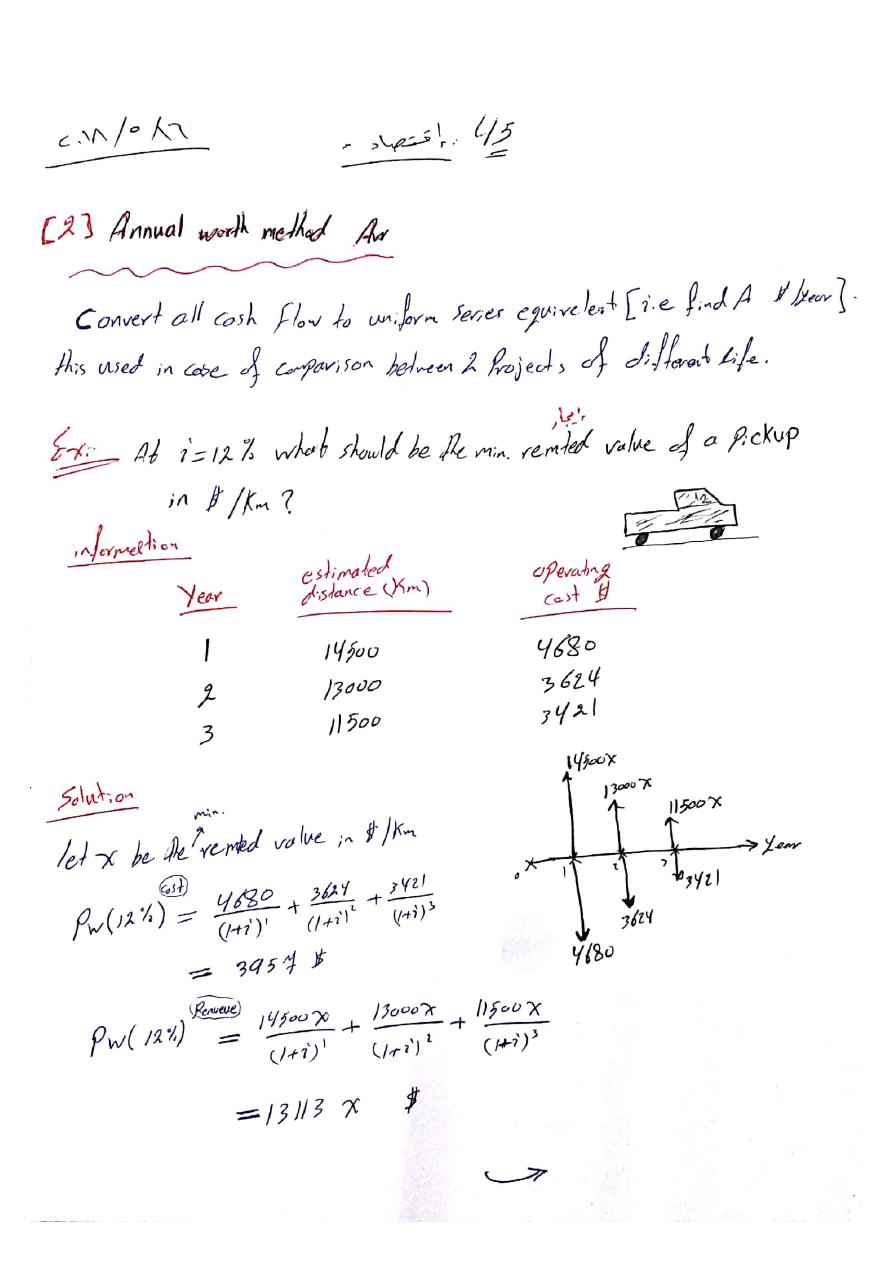 إقتصاد. ل/5
[2] Annual worth method Aw
Convert all cash flow to uniform series equivelent [i.e find A $/year].
this used in case of comparison between 2 Projects of different life.
إيجار
Ex:- At i=12% what should be the min. remted value of a Pickup
in $/Km?
informeltion
Year estimated distance (Km) operating cost $
1 14500 4680
2 13000 3624
3 11500 3421
Solution
min.
let x be the remted value in $/Km
Pw(12%) cost = 4680/(1+i)^1 + 3624/(1+i)^2 + 3421/(1+i)^3
= 3957 $
Pw(12%) Renueve = 14500x/(1+i)^1 + 13000x/(1+i)^2 + 11500x/(1+i)^3
= 13113 x $
14500x
13000x
11500x
0 1 2 3 Year
3421
3624
4680